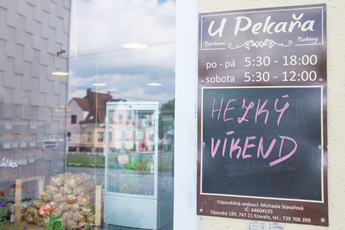 U Pekaňa
Bakery
po - pá 5:30 - 18:00
sobota 5:30 - 12:00
HEZKÝ
VÍKEND
Odpovědná vedoucí: Michaela Stavařová
IČ: 64604535
Opavská 189, 747 21 Kravaře, tel.: 739 706 399